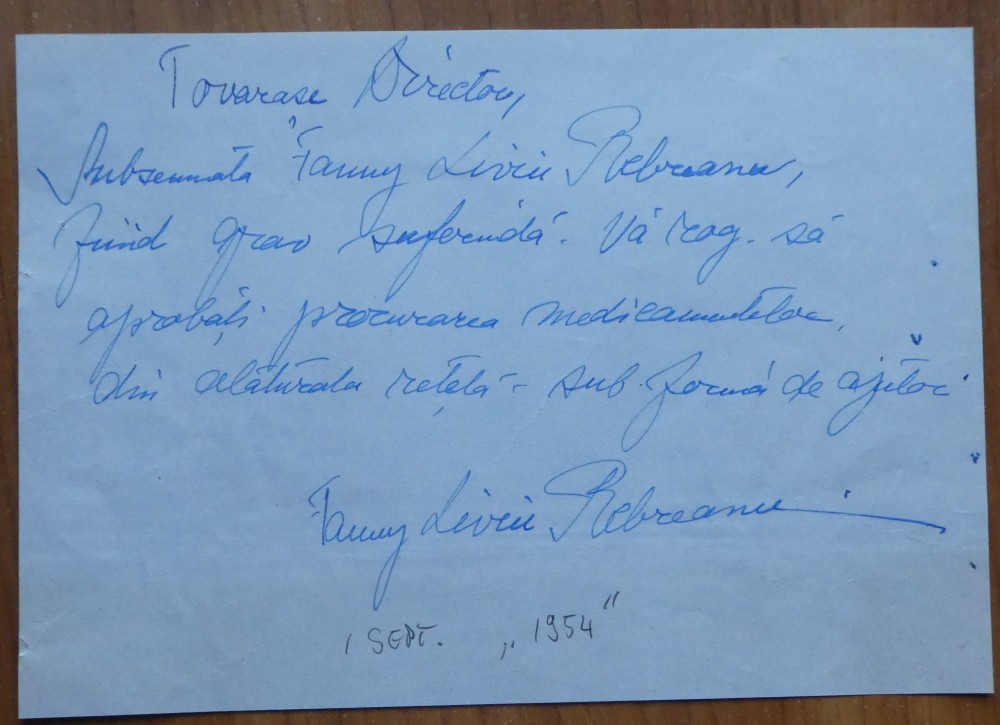 Tovarașe Director,
Subsemnata "Fanny Liviu Rebreanu,
fiind grav suferindă. Vă rog. să
aprobăți procurarea medicamentelor,
din alăturata rețetă - sub formă de ajutor
Fanny Liviu Rebreanu
1 SEPT. „1954"